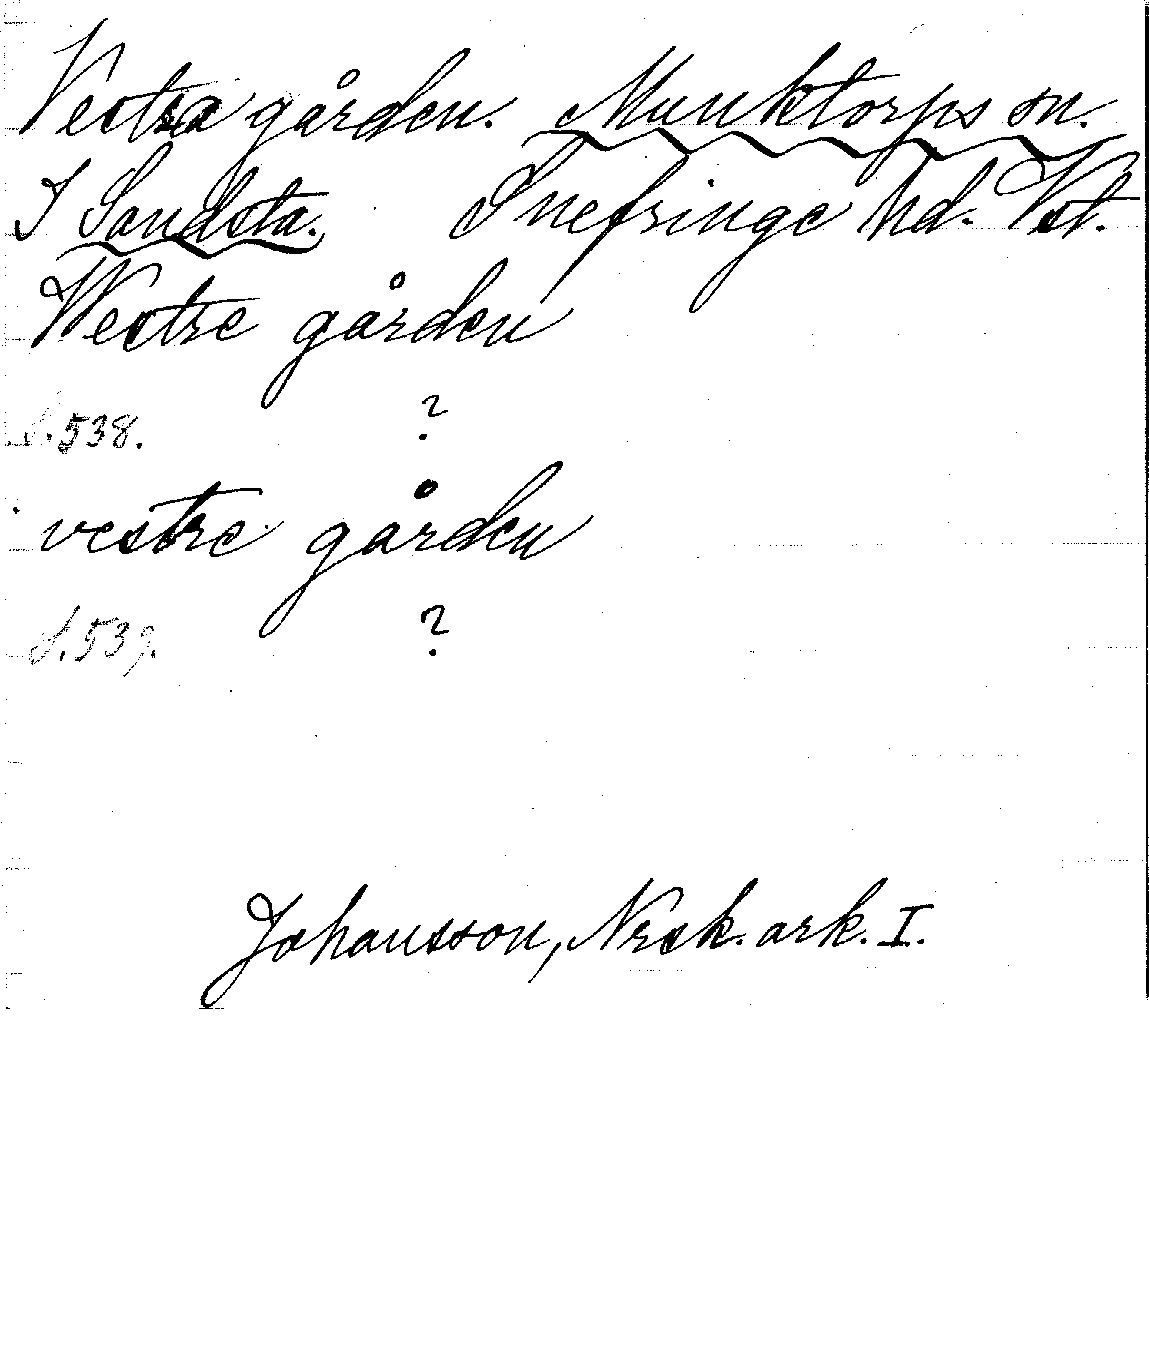 Vestra gården. Munktorps sn.
I Sandsta. Snefringe hd. Vst.
Westre gården
S.538. ?
vestre gården
S.539. ?
Johansson, Nrsk. ark. I.